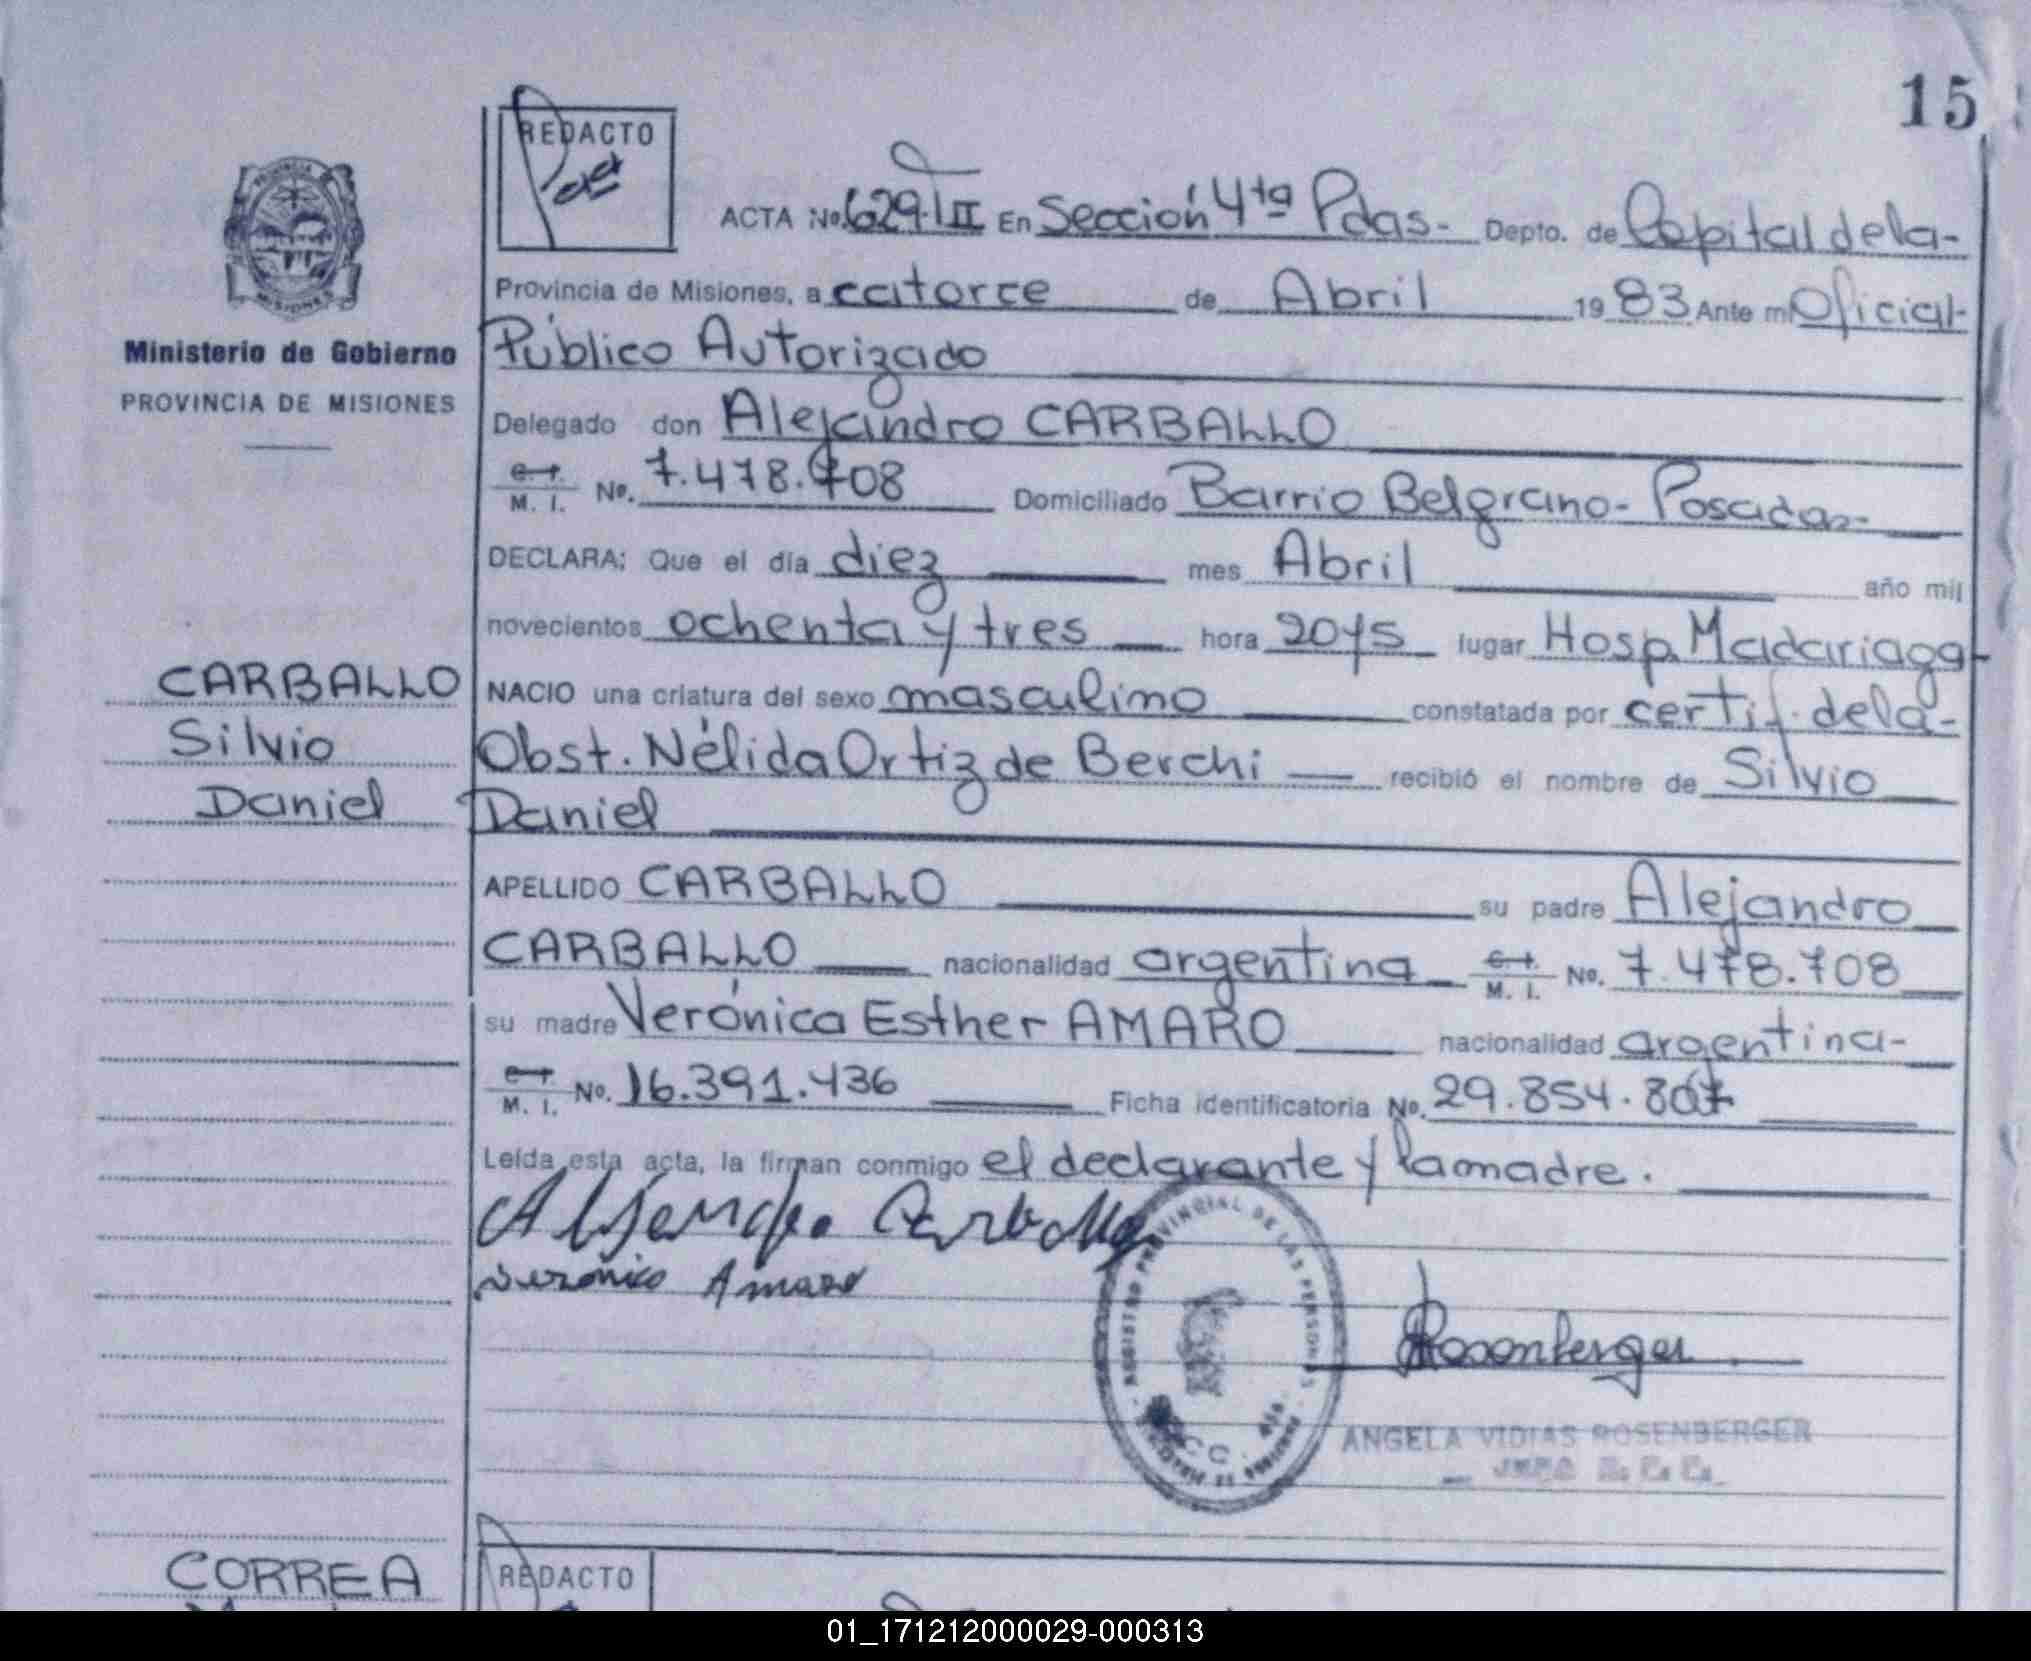 15
REDACTO
PROVINCIA
MISIONES
Ministerio de Gobierno
PROVINCIA DE MISIONES
ACTA No. 629.TII En Sección 4ta Pdas- Depto. de Capital dela-
Provincia de Misiones, a catorce de Abril 1983 Ante mi Oficial-
Público Autorizado
Delegado don Alejandro CARBALLO
C. I. M. I. No. 7.478.708 Domiciliado Barrio Belgrano- Posadas-
DECLARA; Que el día diez mes Abril año mil
novecientos ochenta y tres hora 2045 lugar Hosp. Madariaga-
CARBALLO
Silvio
Daniel
NACIO una criatura del sexo masculino constatada por certif. dela-
Obst. Nélida Ortiz de Berchi recibió el nombre de Silvio
Daniel
APELLIDO CARBALLO su padre Alejandro
CARBALLO nacionalidad argentina C. I. M. I. No. 7.478.708
su madre Verónica Esther AMARO nacionalidad argentina-
C. I. M. I. No. 16.391.436 Ficha identificatoria No. 29.854.807
Leída esta acta, la firman conmigo el declarante y la madre.
Alejandro Carballo
Veronica Amaro
REGISTRO PROVINCIAL DE LAS PERSONAS
Rosenberger
ANGELA VIDIAS ROSENBERGER
CORREA
REDACTO
01_171212000029-000313